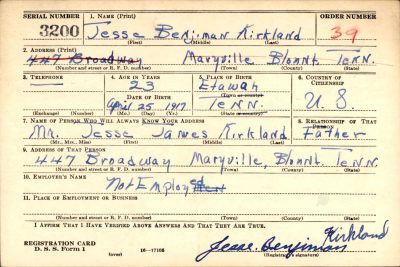 SERIAL NUMBER 1. NAME (Print) ORDER NUMBER
3200 Jesse Benjiman Kirkland 39
(First) (Middle) (Last)
2. ADDRESS (Print)
447 Broadway Maryville Blount Tenn.
(Number and street or R. F. D. number) (Town) (County) (State)
3. TELEPHONE 4. AGE IN YEARS 5. PLACE OF BIRTH 6. COUNTRY OF CITIZENSHIP
— 23 Etawah
DATE OF BIRTH (Town or county)
April 25, 1917 Tenn. U S.
(Exchange) (No.) (Mo.) (Day) (Yr.) (State or country)
7. NAME OF PERSON WHO WILL ALWAYS KNOW YOUR ADDRESS 8. RELATIONSHIP OF THAT PERSON
Mr. Jesse James Kirkland Father
(Mr., Mrs., Miss) (First) (Middle) (Last)
9. ADDRESS OF THAT PERSON
447 Broadway Maryville, Blount. Tenn.
(Number and street or R. F. D. number) (Town) (County) (State)
10. EMPLOYER'S NAME
Not Employed
11. PLACE OF EMPLOYMENT OR BUSINESS
(Number and street or R. F. D. number) (Town) (County) (State)
I AFFIRM THAT I HAVE VERIFIED ABOVE ANSWERS AND THAT THEY ARE TRUE.
REGISTRATION CARD
D. S. S. Form 1 (over) 16—17105
Jesse Benjiman Kirkland